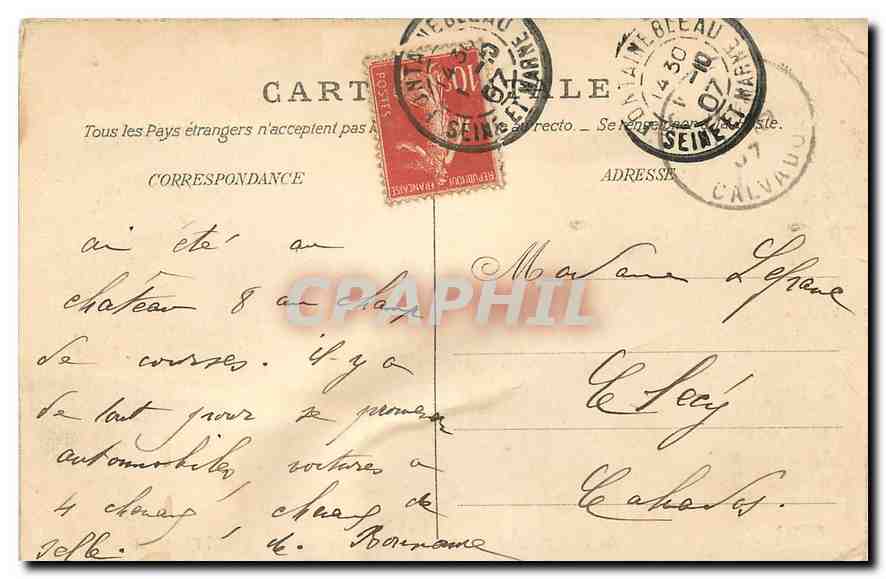 CARTE POSTALE
Tous les Pays étrangers n'acceptent pas au recto. _ Se renseigner à la Poste.
CORRESPONDANCE
ADRESSE
POSTES
10c
REPUBLIQUE FRANÇAISE
FONTAINEBLEAU
14 30
07
SEINE ET MARNE
FONTAINEBLEAU
14 30
-10
07
SEINE ET MARNE
07
CALVADOS
CPAPHIL
ai été au
château & au champ
de courses. il y a
de tout pour se promener
automobiles, voitures a
4 chevaux, chevaux de
selle.
Madame Lefranc
Clécy
Calvados.